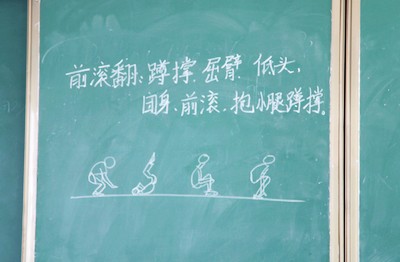 前滚翻、蹲撑、屈臂、低头、
团身、前滚、抱小腿蹲撑。